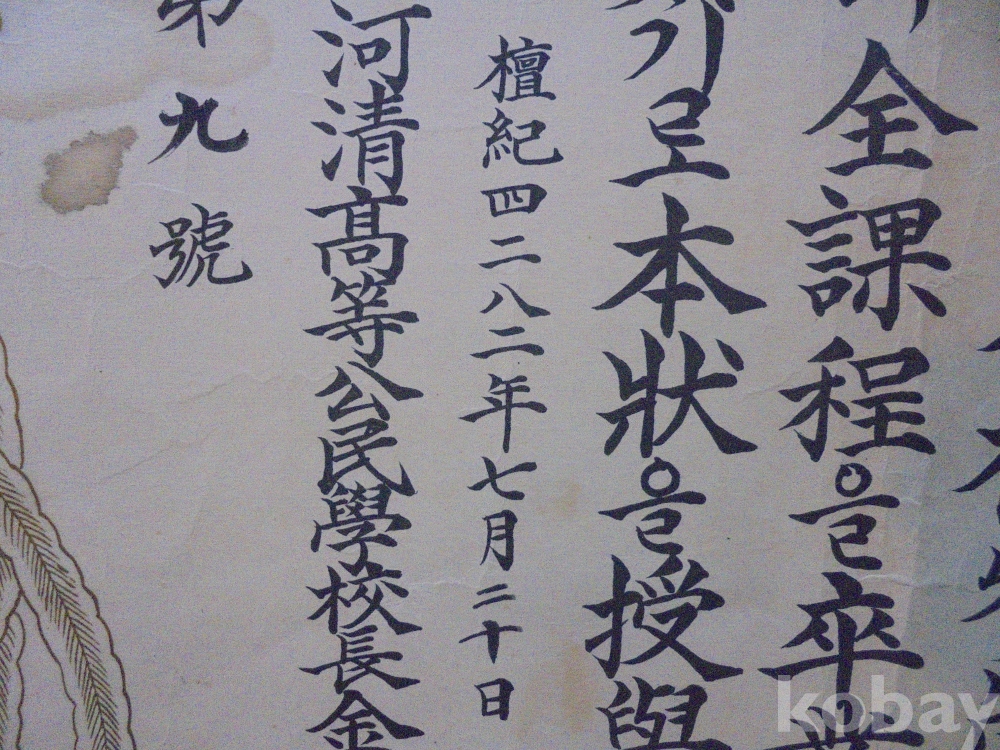 全課程을卒業
기로本狀을授與
檀紀四二八二年七月二十日
河清高等公民學校長金
第九號
kobay